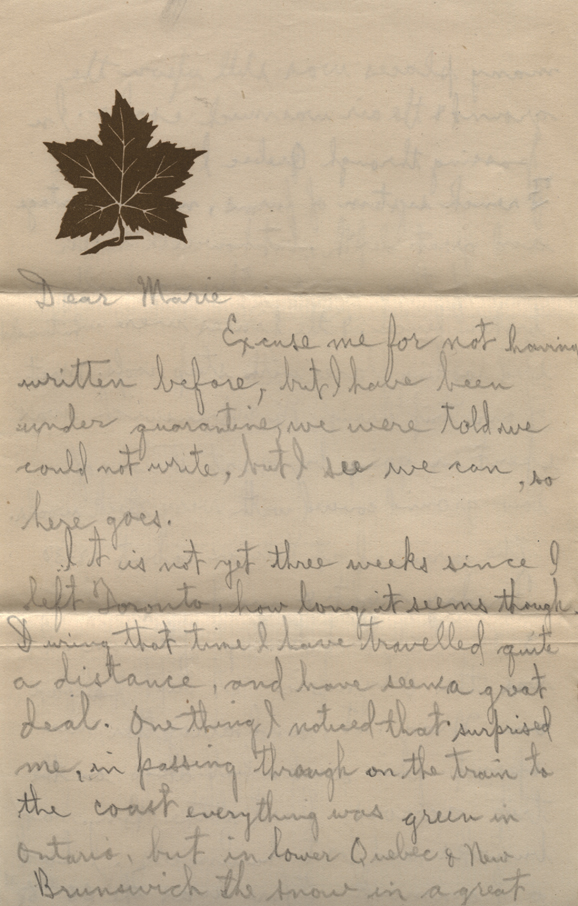 Dear Marie
Excuse me for not having
written before, but I have been
under quarantine, we were told we
could not write, but I see we can, so
here goes.
It is not yet three weeks since I
left Toronto, how long it seems though.
During that time I have travelled quite
a distance, and have seen a great
deal. One thing I noticed that surprised
me, in passing through on the train to
the coast everything was green in
Ontario, but in lower Quebec & New
Brunswick the snow in a great